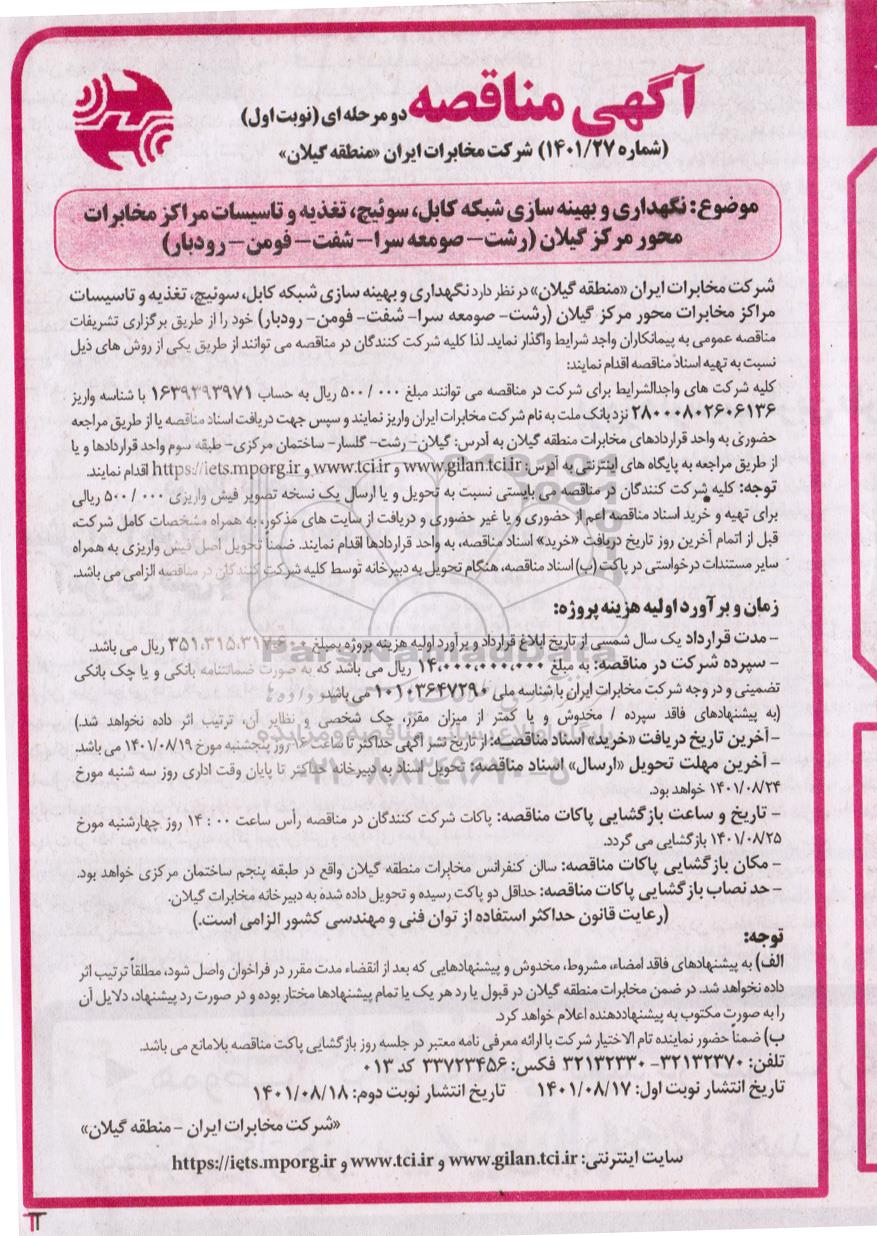 آگهی مناقصه دو مرحله ای (نوبت اول)
(شماره ۱۴۰۱/۲۷) شرکت مخابرات ایران «منطقه گیلان»
موضوع: نگهداری و بهینه سازی شبکه کابل، سوئیچ، تغذیه و تاسیسات مراکز مخابرات
محور مرکز گیلان (رشت– صومعه سرا– شفت– فومن– رودبار)
شرکت مخابرات ایران «منطقه گیلان» در نظر دارد نگهداری و بهینه سازی شبکه کابل، سوئیچ، تغذیه و تاسیسات
مراکز مخابرات محور مرکز گیلان (رشت- صومعه سرا- شفت- فومن- رودبار) خود را از طریق برگزاری تشریفات
مناقصه عمومی به پیمانکاران واجد شرایط واگذار نماید. لذا کلیه شرکت کنندگان در مناقصه می توانند از طریق یکی از روش های ذیل
نسبت به تهیه اسناد مناقصه اقدام نمایند:
کلیه شرکت های واجدالشرایط برای شرکت در مناقصه می توانند مبلغ ۵۰۰/۰۰۰ ریال به حساب ۱۶۳۹۳۹۳۹۷۱ با شناسه واریز
۲۸۰۰۰۸۰۲۶۰۶۱۳۶ نزد بانک ملت به نام شرکت مخابرات ایران واریز نمایند و سپس جهت دریافت اسناد مناقصه یا از طریق مراجعه
حضوری به واحد قراردادهای مخابرات منطقه گیلان به آدرس: گیلان– رشت– گلسار– ساختمان مرکزی– طبقه سوم واحد قراردادها و یا
از طریق مراجعه به پایگاه های اینترنتی به آدرس: www.gilan.tci.ir و www.tci.ir و https://iets.mporg.ir اقدام نمایند.
توجه: کلیه شرکت کنندگان در مناقصه می بایستی نسبت به تحویل و یا ارسال یک نسخه تصویر فیش واریزی ۵۰۰/۰۰۰ ریالی
برای تهیه و خرید اسناد مناقصه اعم از حضوری و یا غیر حضوری و دریافت از سایت های مذکور، به همراه مشخصات کامل شرکت،
قبل از اتمام آخرین روز تاریخ دریافت «خرید» اسناد مناقصه، به واحد قراردادها اقدام نمایند. ضمناً تحویل اصل فیش واریزی به همراه
سایر مستندات درخواستی در پاکت (ب) اسناد مناقصه، هنگام تحویل به دبیرخانه توسط کلیه شرکت کنندگان در مناقصه الزامی می باشد.
زمان و برآورد اولیه هزینه پروژه:
– مدت قرارداد یک سال شمسی از تاریخ ابلاغ قرارداد و برآورد اولیه هزینه پروژه بمبلغ ۳۵۱،۳۱۵،۳۱۷،۶۰۰ ریال می باشد.
– سپرده شرکت در مناقصه: به مبلغ ۱۴،۰۰۰،۰۰۰،۰۰۰ ریال می باشد که به صورت ضمانتنامه بانکی و یا چک بانکی
تضمینی و در وجه شرکت مخابرات ایران با شناسه ملی ۱۰۱۰۳۶۴۷۲۹۰ می باشد.
(به پیشنهادهای فاقد سپرده / مخدوش و یا کمتر از میزان مقرر، چک شخصی و نظایر آن، ترتیب اثر داده نخواهد شد.)
– آخرین تاریخ دریافت «خرید» اسناد مناقصه: از تاریخ نشر آگهی حداکثر تا ساعت ۱۶ روز پنجشنبه مورخ ۱۴۰۱/۰۸/۱۹ می باشد.
– آخرین مهلت تحویل «ارسال» اسناد مناقصه: تحویل اسناد به دبیرخانه حداکثر تا پایان وقت اداری روز سه شنبه مورخ
۱۴۰۱/۰۸/۲۴ خواهد بود.
– تاریخ و ساعت بازگشایی پاکات مناقصه: پاکات شرکت کنندگان در مناقصه رأس ساعت ۱۴:۰۰ روز چهارشنبه مورخ
۱۴۰۱/۰۸/۲۵ بازگشایی می گردد.
– مکان بازگشایی پاکات مناقصه: سالن کنفرانس مخابرات منطقه گیلان واقع در طبقه پنجم ساختمان مرکزی خواهد بود.
– حد نصاب بازگشایی پاکات مناقصه: حداقل دو پاکت رسیده و تحویل داده شده به دبیرخانه مخابرات گیلان.
(رعایت قانون حداکثر استفاده از توان فنی و مهندسی کشور الزامی است.)
توجه:
الف) به پیشنهادهای فاقد امضاء، مشروط، مخدوش و پیشنهادهایی که بعد از انقضاء مدت مقرر در فراخوان واصل شود، مطلقاً ترتیب اثر
داده نخواهد شد. در ضمن مخابرات منطقه گیلان در قبول یا رد هر یک یا تمام پیشنهادها مختار بوده و در صورت رد پیشنهاد، دلایل آن
را به صورت مکتوب به پیشنهاددهنده اعلام خواهد کرد.
ب) ضمناً حضور نماینده تام الاختیار شرکت با ارائه معرفی نامه معتبر در جلسه روز بازگشایی پاکت مناقصه بلامانع می باشد.
تلفن: ۳۲۱۳۲۳۷۰- ۳۲۱۳۲۳۳۰ فکس: ۳۳۷۲۳۴۵۶ کد ۰۱۳
تاریخ انتشار نوبت اول: ۱۴۰۱/۰۸/۱۷ تاریخ انتشار نوبت دوم: ۱۴۰۱/۰۸/۱۸
«شرکت مخابرات ایران – منطقه گیلان»
سایت اینترنتی: www.gilan.tci.ir و www.tci.ir و https://iets.mporg.ir
ParsNamadData
پایگاه اطلاع رسانی مناقصه و مزایده